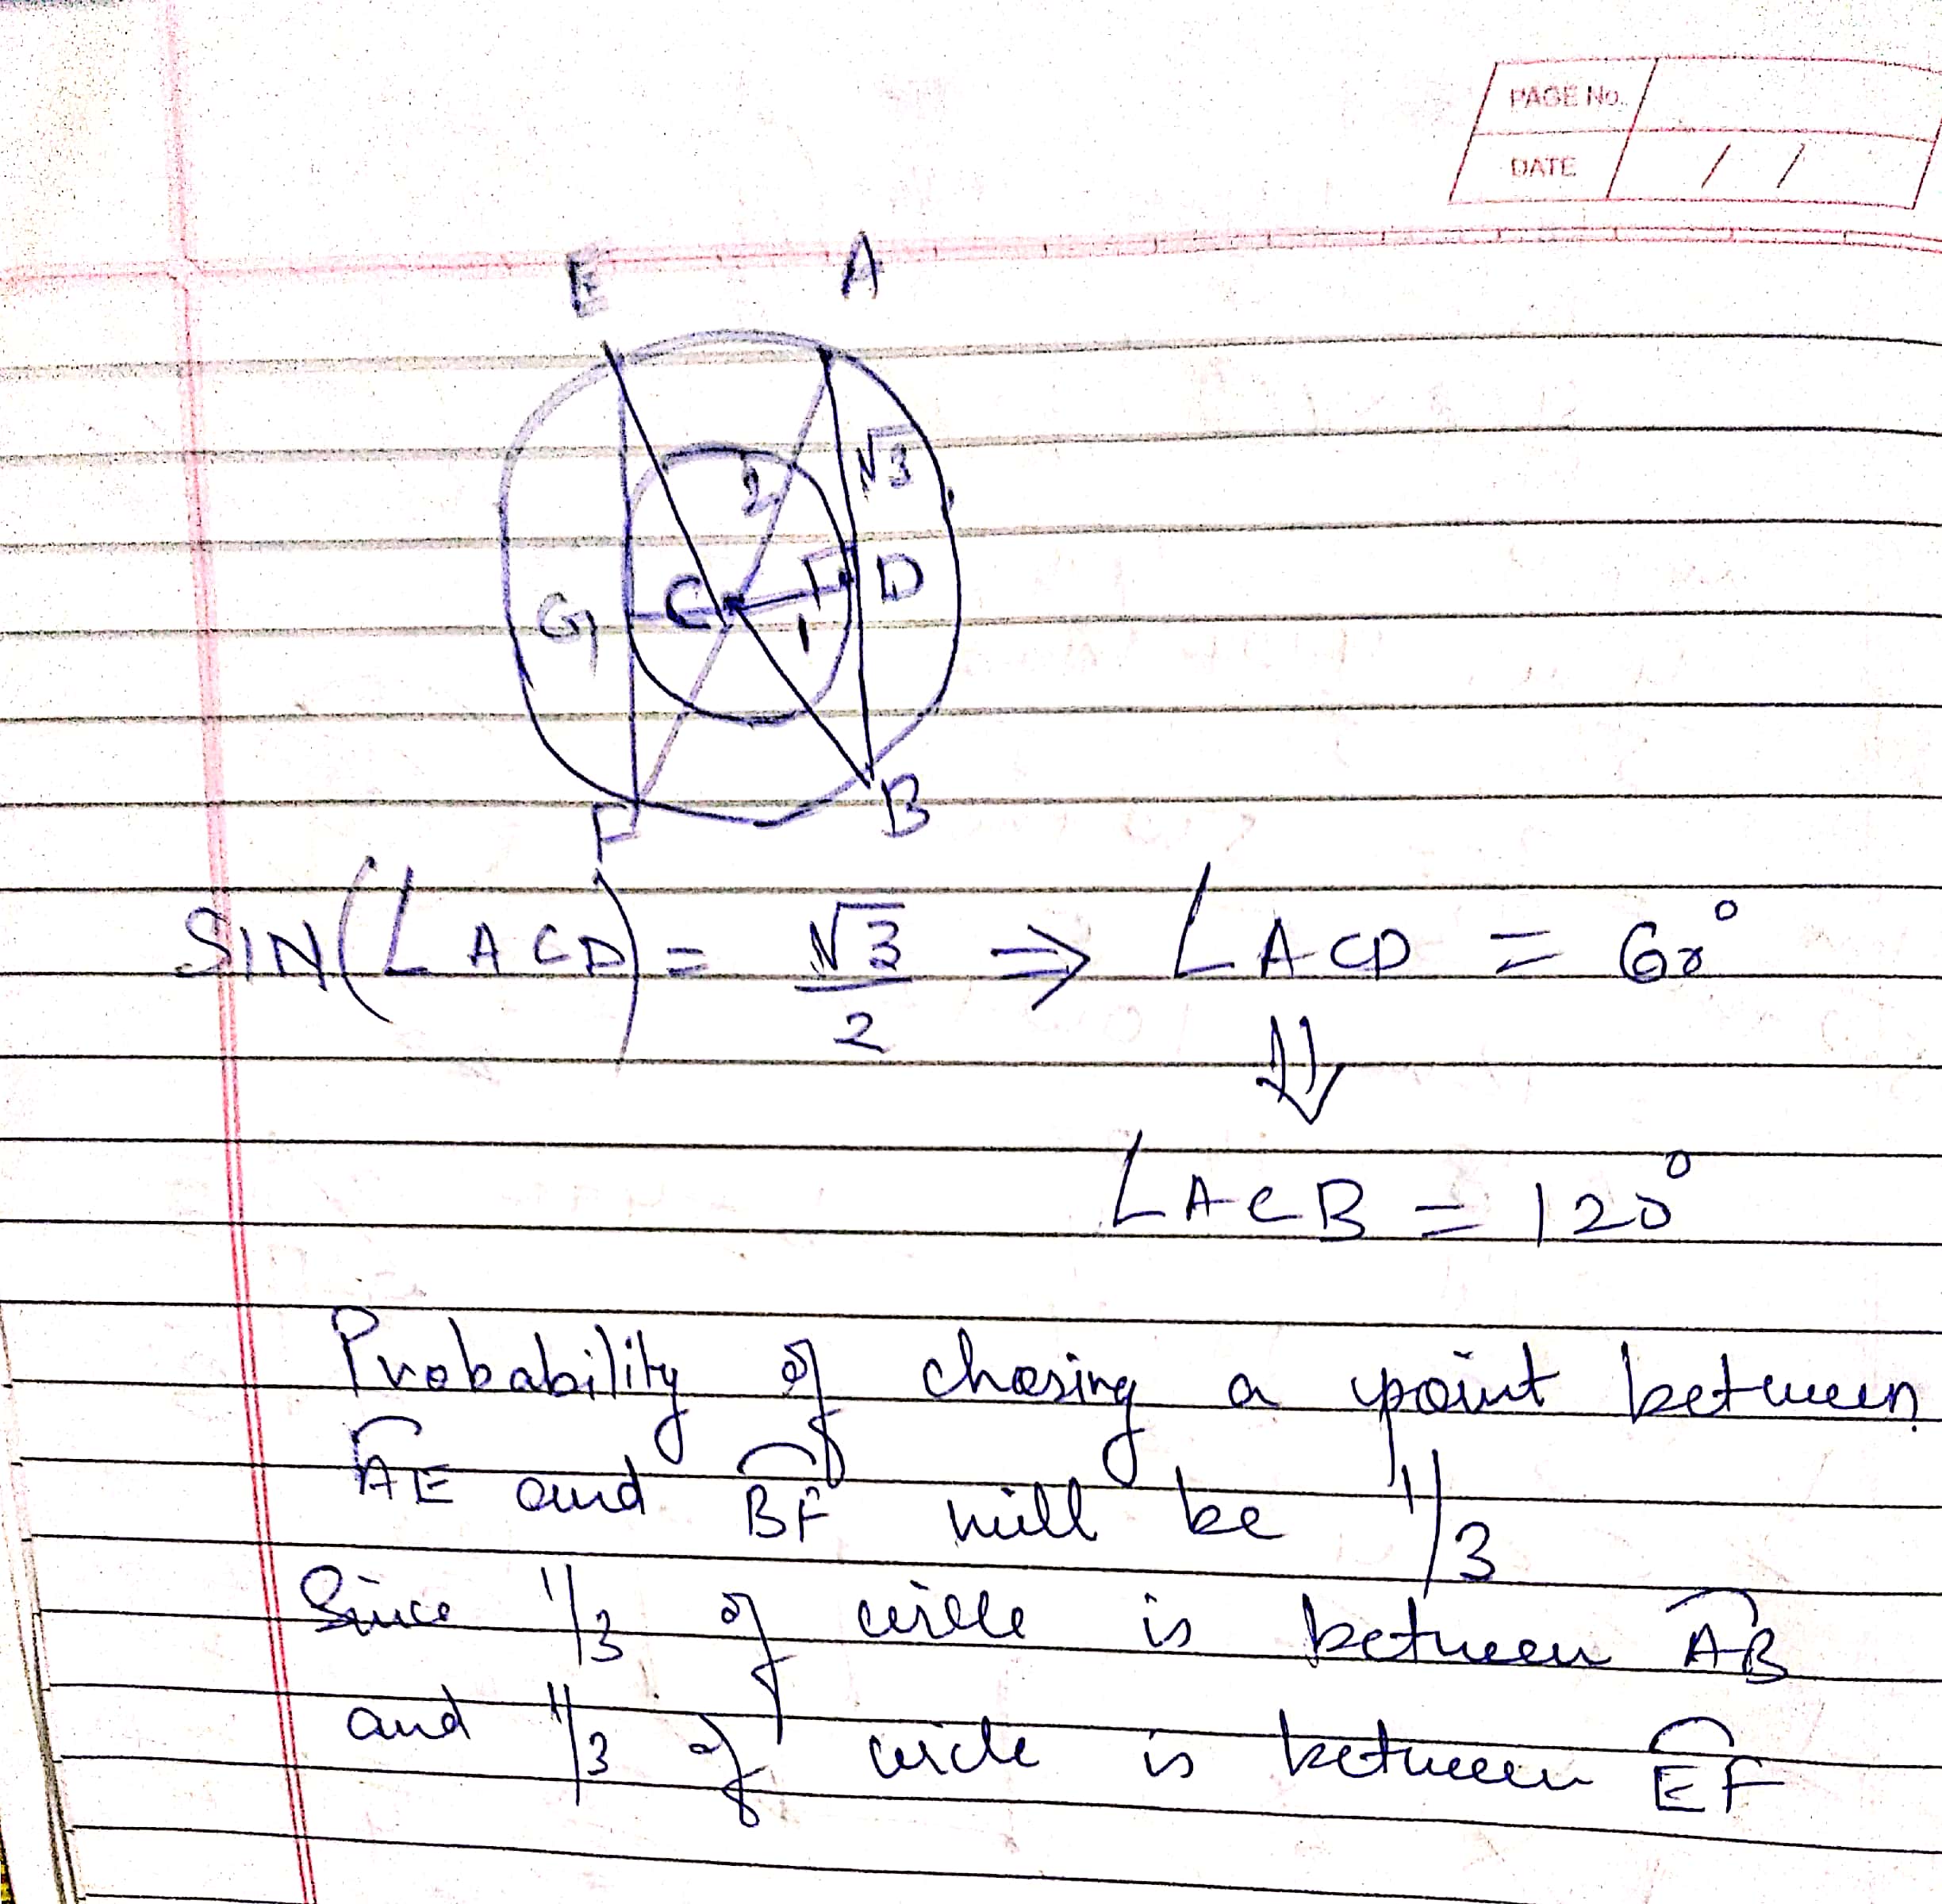 PAGE No.
DATE / /
E A
√3
2
G C 1 D
F B
SIN(∠ACD) = √3/2 ⇒ ∠ACD = 60°
⇓
∠ACB = 120°
Probability of chosing a point between
A͡E and B͡F will be 1/3
Since 1/3 of circle is between A͡B
and 1/3 of circle is between E͡F